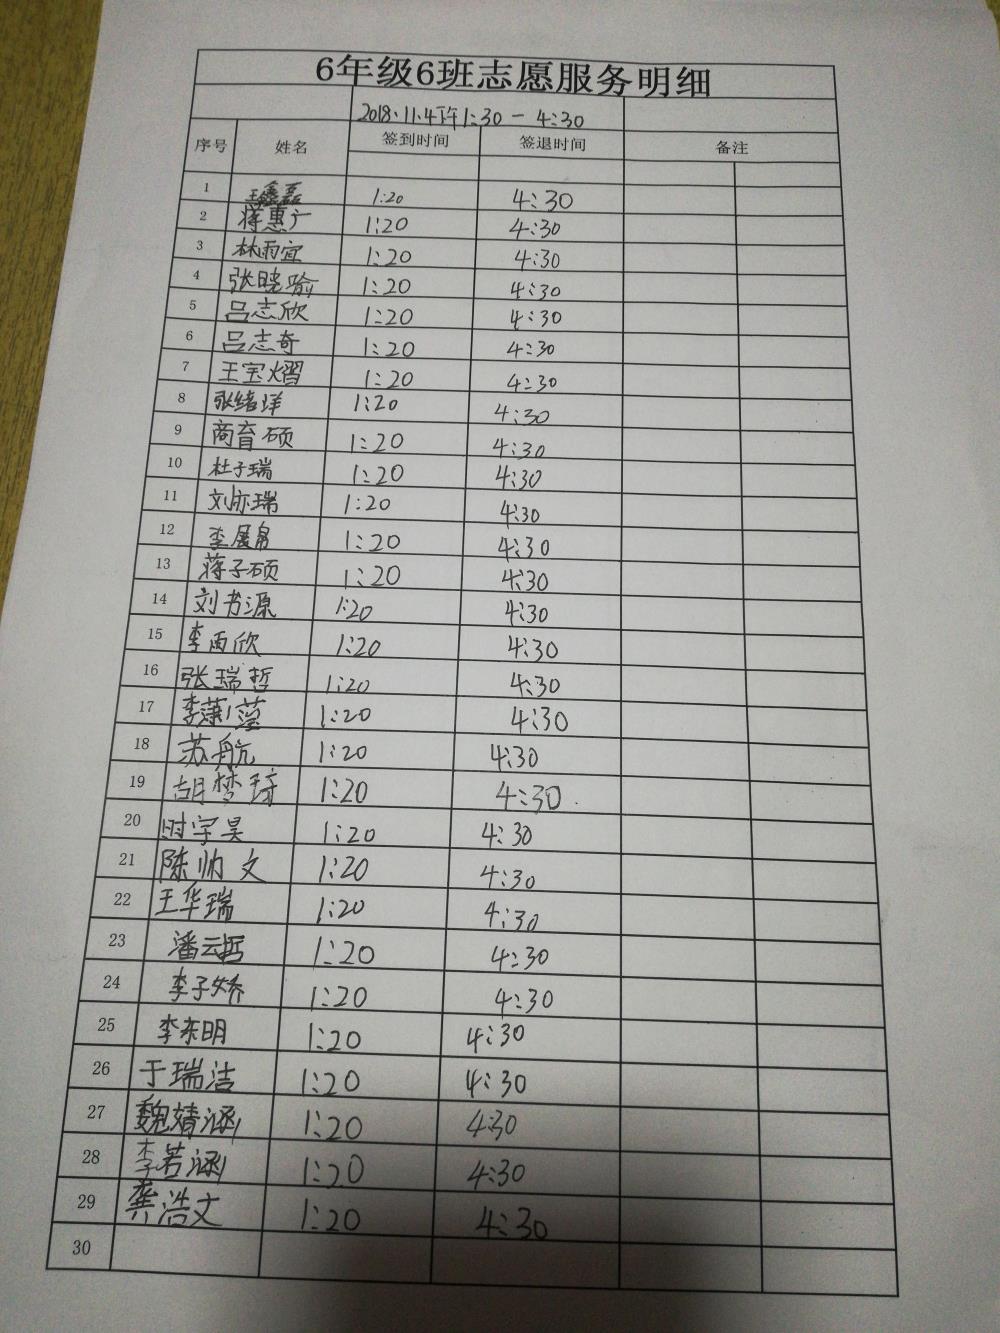 6年级6班志愿服务明细
2018.11.4下午1:30 — 4:30
序号 姓名 签到时间 签退时间 备注
1 王鑫磊 1:20 4:30
2 蒋惠广 1:20 4:30
3 林雨宜 1:20 4:30
4 张晓瑜 1:20 4:30
5 吕志欣 1:20 4:30
6 吕志奇 1:20 4:30
7 王宝熠 1:20 4:30
8 张绪洋 1:20 4:30
9 商育硕 1:20 4:30
10 杜子瑞 1:20 4:30
11 刘亦瑞 1:20 4:30
12 李展帛 1:20 4:30
13 蒋子硕 1:20 4:30
14 刘书源 1:20 4:30
15 李雨欣 1:20 4:30
16 张瑞哲 1:20 4:30
17 李潇 1:20 4:30
18 苏航 1:20 4:30
19 胡梦琦 1:20 4:30
20 时宇昊 1:20 4:30
21 陈帅文 1:20 4:30
22 王华瑞 1:20 4:30
23 潘云哲 1:20 4:30
24 李子娇 1:20 4:30
25 李东明 1:20 4:30
26 于瑞洁 1:20 4:30
27 魏婧涵 1:20 4:30
28 李若涵 1:20 4:30
29 龚浩文 1:20 4:30
30